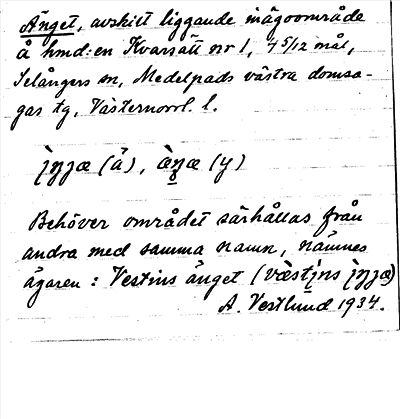 Änget, avskilt liggande inägoområde
å hmd:en Kvarsätt nr 1, 7 5/12 mål,
Selångers sn, Medelpads västra domsa-
gas tg, Västernorrl. l.
Behöver området särhållas från
andra med samma namn, nämnes
ägaren: Vestins änget (væstins
A. Vestlund 1934.